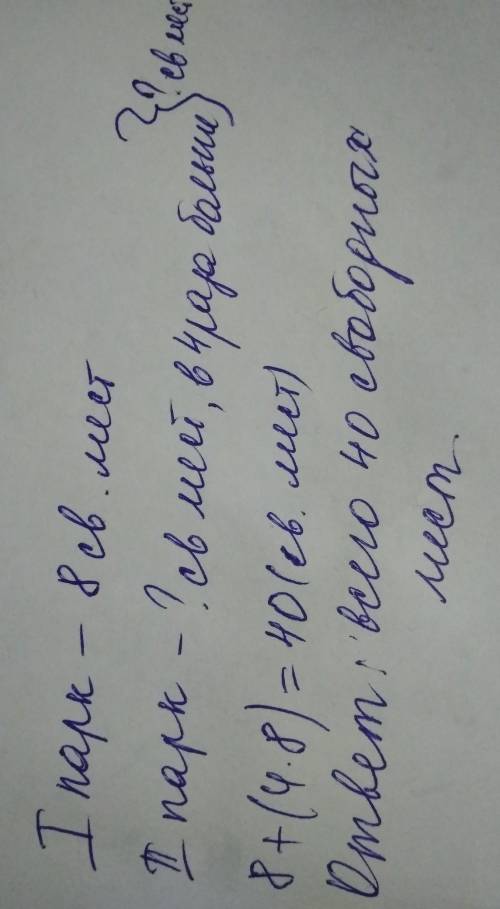 I парк – 8 св. мест
II парк – ? св мест, в 4 раза больше } ? св мест
8 + (4 · 8) = 40 (св. мест)
Ответ: всего 40 свободных
мест